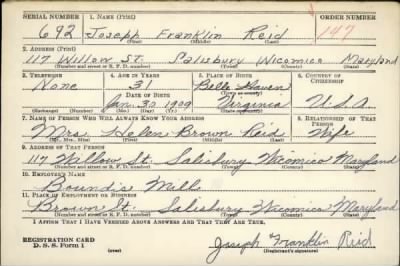 SERIAL NUMBER 1. NAME (Print) ORDER NUMBER
692 Joseph Franklin Reid 147
(First) (Middle) (Last)
2. ADDRESS (Print)
117 Willow St. Salisbury Wicomico Maryland
(Number and street or R. F. D. number) (Town) (County) (State)
3. TELEPHONE 4. AGE IN YEARS 5. PLACE OF BIRTH 6. COUNTRY OF CITIZENSHIP
None 31 Belle Haven
DATE OF BIRTH (Town or county)
Jan. 30 1909 Virginia U.S.A.
(Exchange) (Number) (Mo.) (Day) (Yr.) (State or country)
7. NAME OF PERSON WHO WILL ALWAYS KNOW YOUR ADDRESS 8. RELATIONSHIP OF THAT PERSON
Mrs. Helen Brown Reid Wife
(Mr., Mrs., Miss) (First) (Middle) (Last)
9. ADDRESS OF THAT PERSON
117 Willow St. Salisbury Wicomico Maryland
(Number and street or R. F. D. number) (Town) (County) (State)
10. EMPLOYER'S NAME
Bounds Mill
11. PLACE OF EMPLOYMENT OR BUSINESS
Brown St. Salisbury Wicomico Maryland
(Number and street or R. F. D. number) (Town) (County) (State)
I AFFIRM THAT I HAVE VERIFIED ABOVE ANSWERS AND THAT THEY ARE TRUE.
REGISTRATION CARD
D. S. S. Form 1 (over) Joseph Franklin Reid
(Registrant's signature)